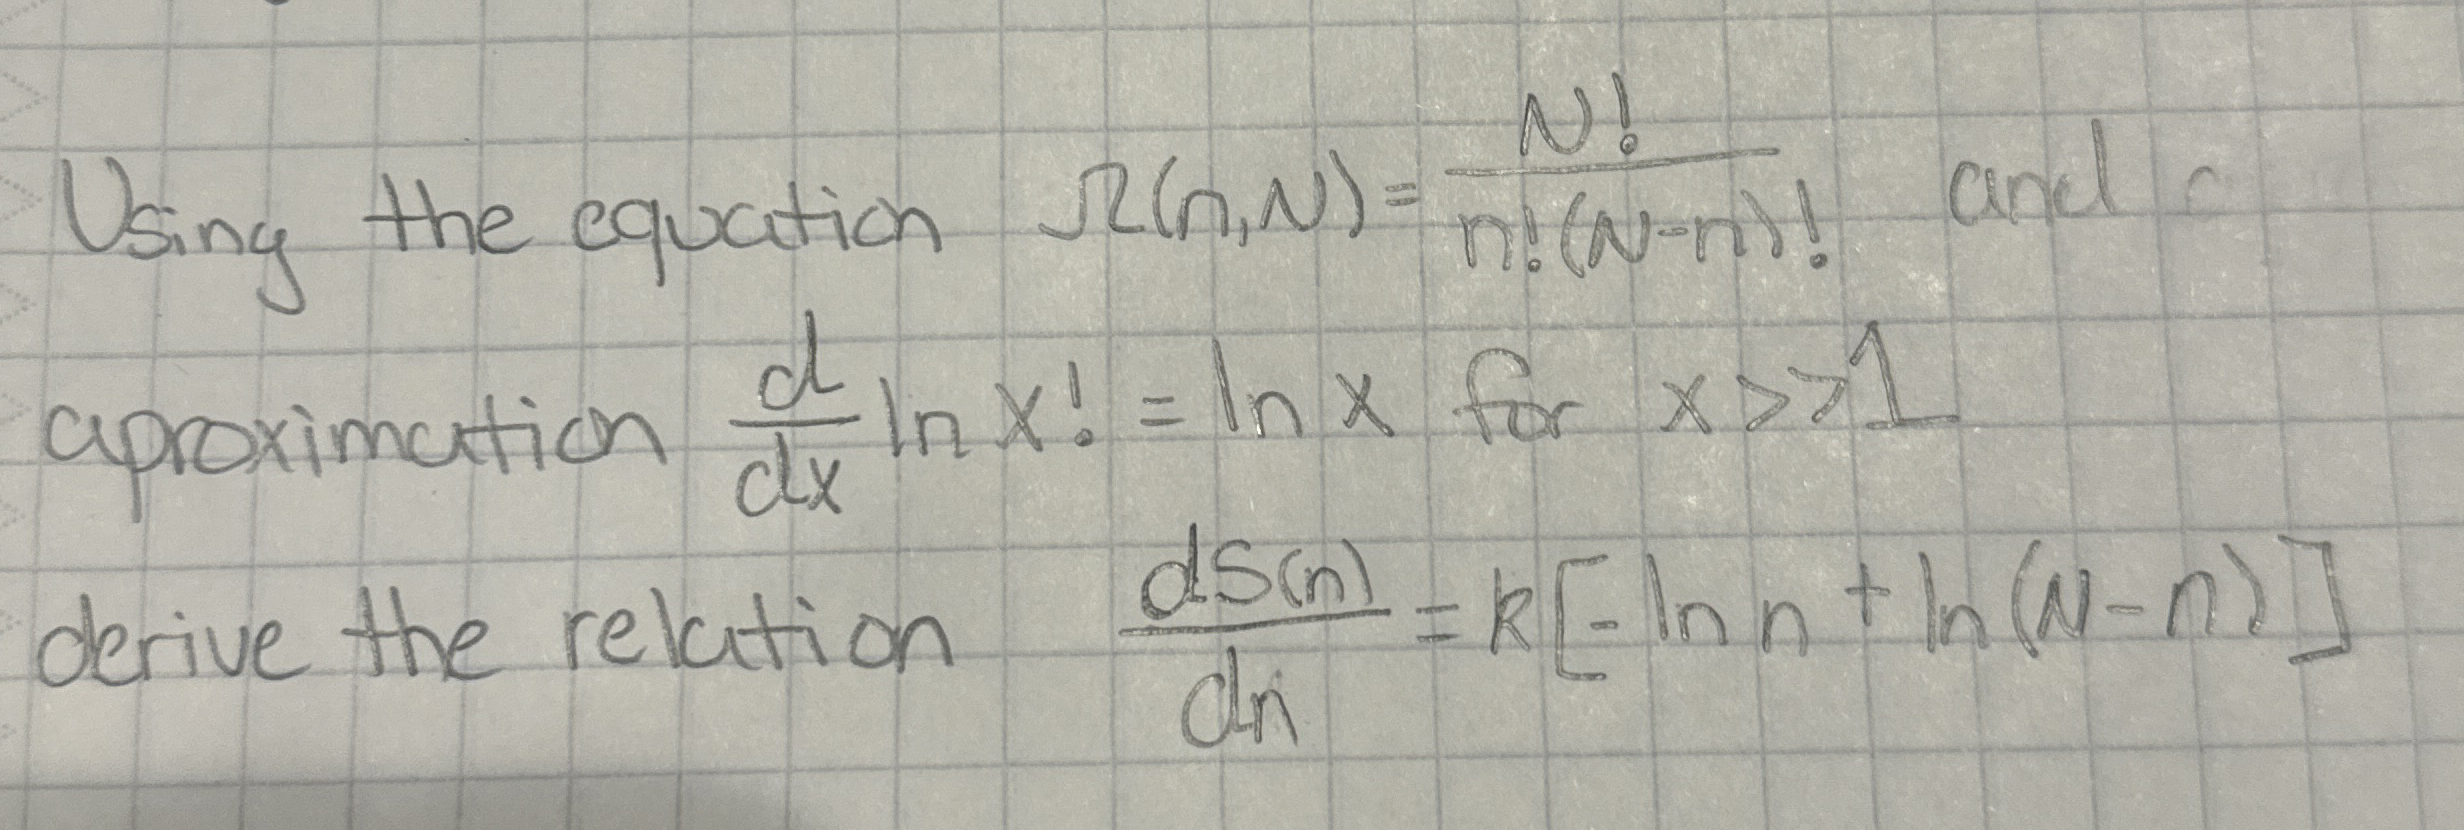 Using the equation Ω(n,N) = N! / n!(N-n)! and
aproximation d/dx ln x! = ln x for x >> 1
derive the relation dS(n)/dn = k[-ln n + ln(N-n)]